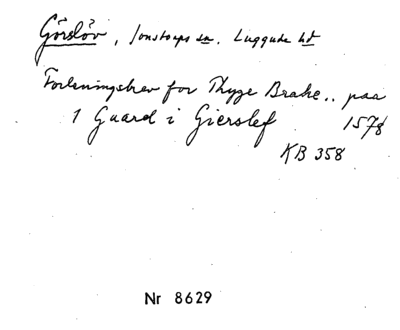 Görslöv, Jonstorps sn. Luggude hd
Forleningsbrev for Thyge Brahe.. paa
1 Gaard i Gierslef 1578
KB 358
Nr 8629